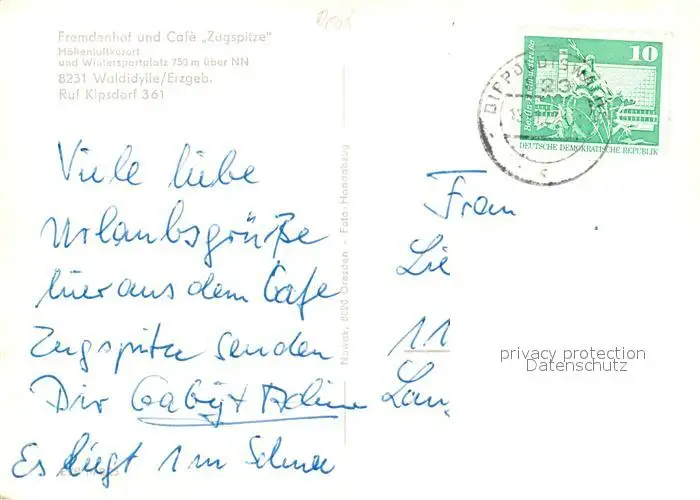 Fremdenhof und Cafè „Zugspitze“
Höhenluftkurort
und Wintersportplatz 750 m über NN
8231 Waldidylle/Erzgeb.
Ruf Kipsdorf 361
Viele liebe
Urlaubsgrüße
hier aus dem Cafe
Zugspitze senden
Dir Gaby +
Es liegt 1 m Schnee
Nowak, 8020 Dresden - Foto Handabzug
10
DEUTSCHE DEMOKRATISCHE REPUBLIK
Frau
Lie
11
privacy protection
Datenschutz